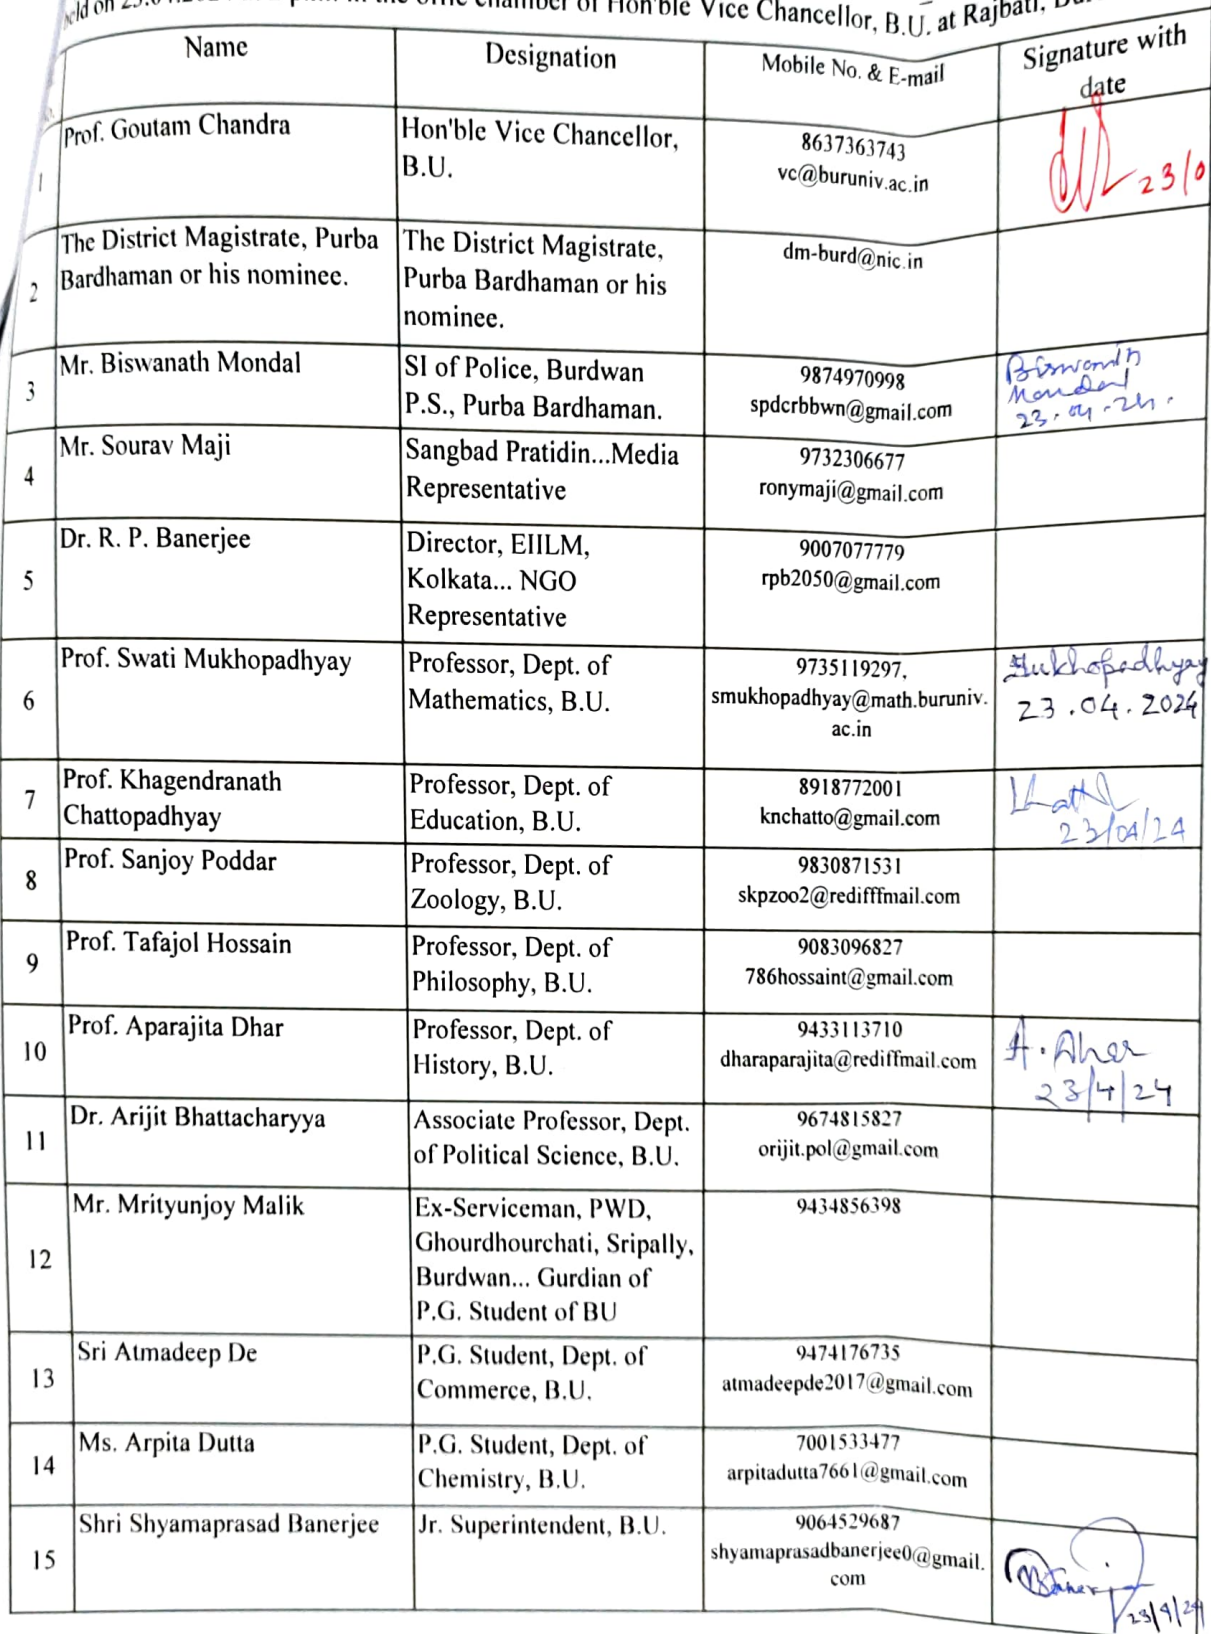 held on
chamber of Hon'ble Vice Chancellor, B.U. at Rajbati,
Name
Designation
Mobile No. & E-mail
Signature with
date
1
Prof. Goutam Chandra
Hon'ble Vice Chancellor,
B.U.
8637363743
vc@buruniv.ac.in
23/0
2
The District Magistrate, Purba
Bardhaman or his nominee.
The District Magistrate,
Purba Bardhaman or his
nominee.
dm-burd@nic.in
3
Mr. Biswanath Mondal
SI of Police, Burdwan
P.S., Purba Bardhaman.
9874970998
spdcrbbwn@gmail.com
Biswanath
Mondal
23.04.24.
4
Mr. Sourav Maji
Sangbad Pratidin...Media
Representative
9732306677
ronymaji@gmail.com
5
Dr. R. P. Banerjee
Director, EIILM,
Kolkata... NGO
Representative
9007077779
rpb2050@gmail.com
6
Prof. Swati Mukhopadhyay
Professor, Dept. of
Mathematics, B.U.
9735119297,
smukhopadhyay@math.buruniv.
ac.in
Mukhopadhyay
23.04.2024
7
Prof. Khagendranath
Chattopadhyay
Professor, Dept. of
Education, B.U.
8918772001
knchatto@gmail.com
23/04/24
8
Prof. Sanjoy Poddar
Professor, Dept. of
Zoology, B.U.
9830871531
skpzoo2@redifffmail.com
9
Prof. Tafajol Hossain
Professor, Dept. of
Philosophy, B.U.
9083096827
786hossaint@gmail.com
10
Prof. Aparajita Dhar
Professor, Dept. of
History, B.U.
9433113710
dharaparajita@rediffmail.com
A. Dhar
23/4/24
11
Dr. Arijit Bhattacharyya
Associate Professor, Dept.
of Political Science, B.U.
9674815827
orijit.pol@gmail.com
12
Mr. Mrityunjoy Malik
Ex-Serviceman, PWD,
Ghourdhourchati, Sripally,
Burdwan... Gurdian of
P.G. Student of BU
9434856398
13
Sri Atmadeep De
P.G. Student, Dept. of
Commerce, B.U.
9474176735
atmadeepde2017@gmail.com
14
Ms. Arpita Dutta
P.G. Student, Dept. of
Chemistry, B.U.
7001533477
arpitadutta7661@gmail.com
15
Shri Shyamaprasad Banerjee
Jr. Superintendent, B.U.
9064529687
shyamaprasadbanerjee0@gmail.
com
Banerjee
23/4/24